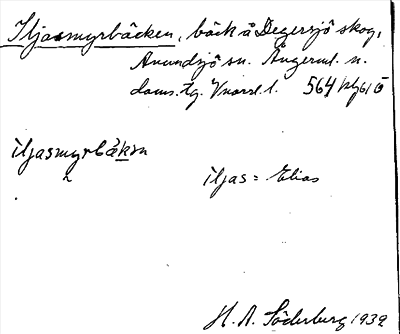 Iljasmyrbäcken, bäck å Degersjö skog,
Anundsjö sn. Ångerml. n.
doms. tg. Vnorrl. l. 564
iljasmyrbäkɳ
iljas = Elias
H. A. Söderberg 1932